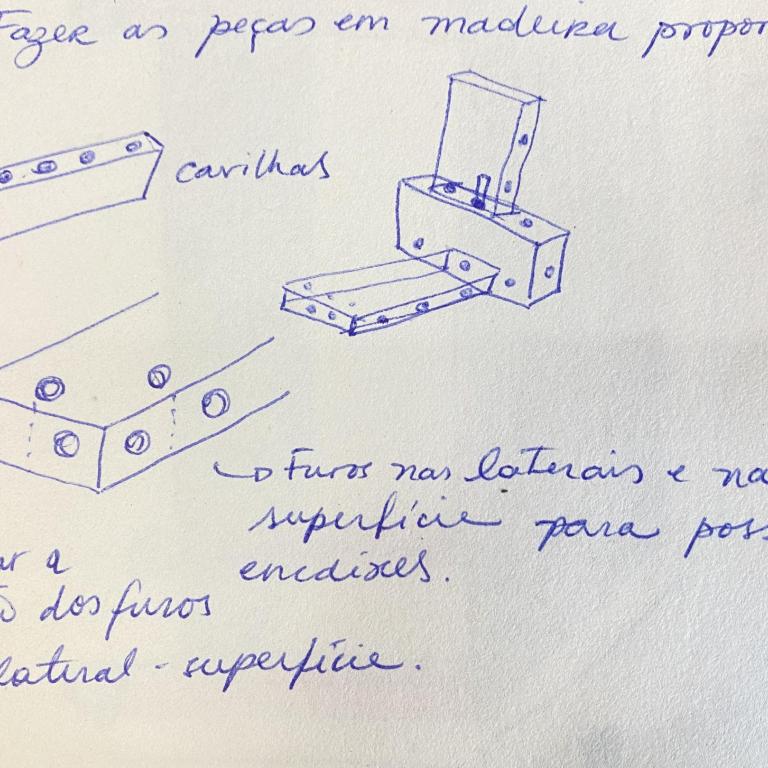 Fazer as peças em madeira propor
cavilhas
Furos nas laterais e na
superfície para poss
encaixes.
ar a
dos furos
lateral - superfície.